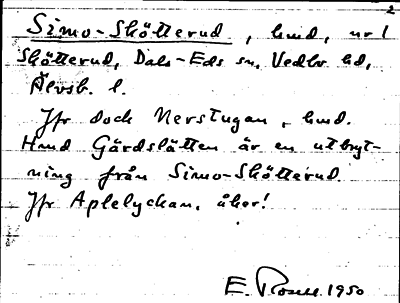 2
Simo-Skötterud, hmd, nr 1
Skötterud, Dals-Eds sn, Vedbo hd,
Älvsb. l.
Jfr dock Nerstugan, hmd.
Hmd Gärdslätten är en utbryt-
ning från Simo-Skötterud.
Jfr Aplelyckan, åker!
E. 1950